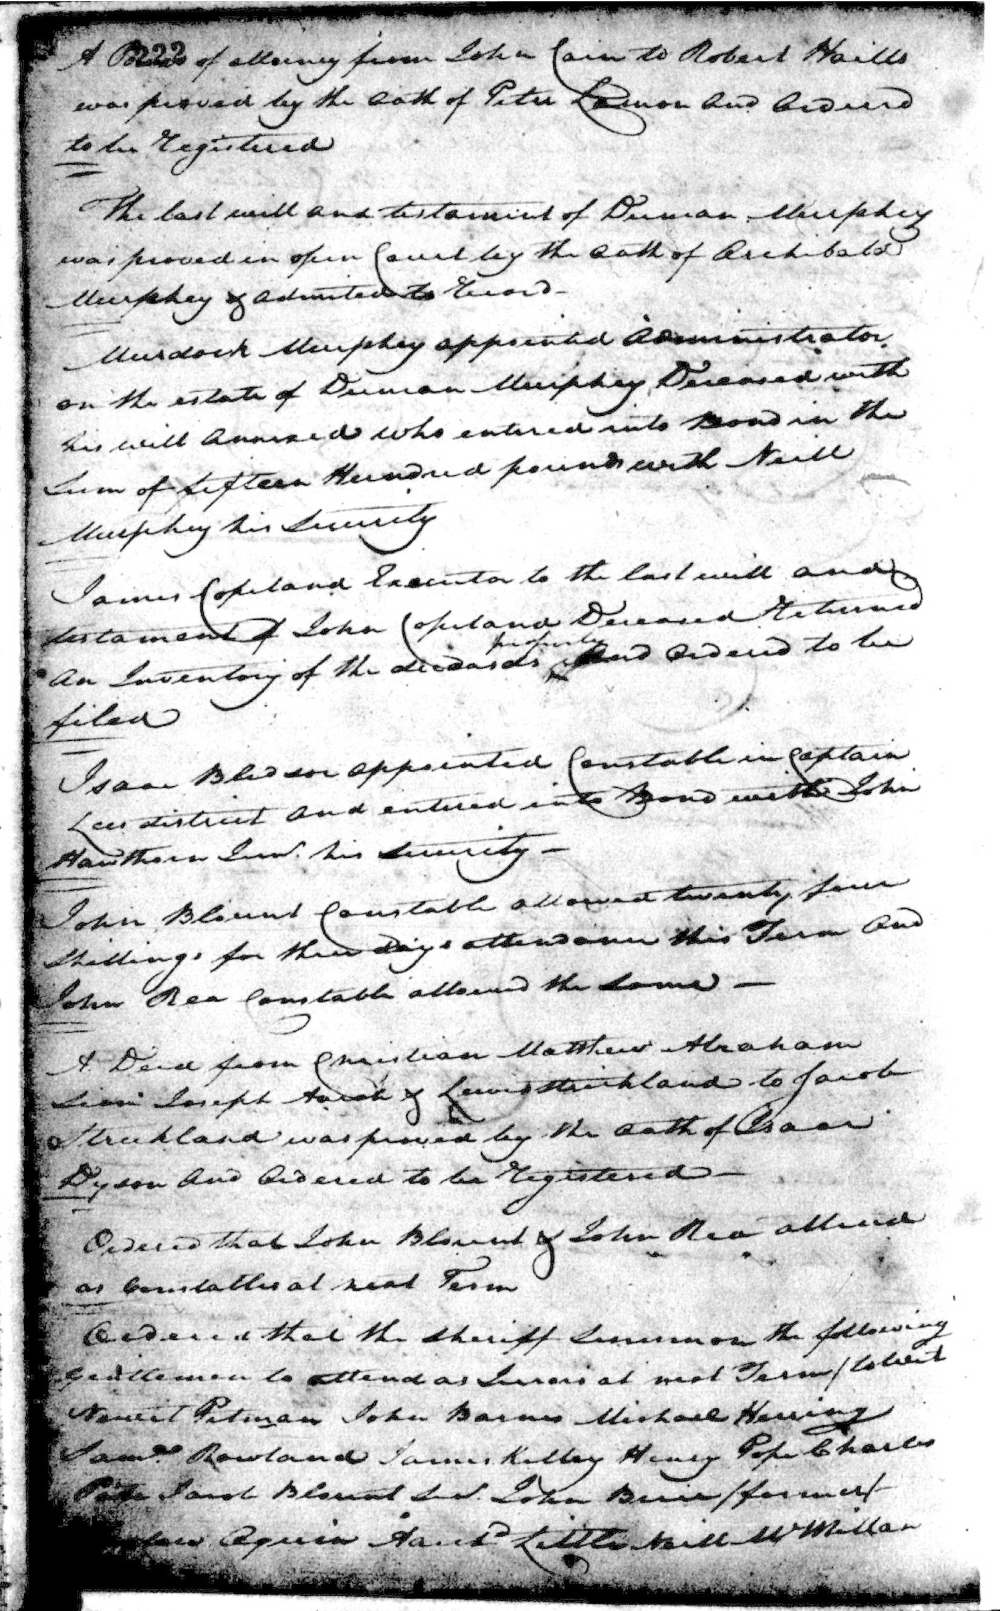 222
A Power of attorney from John Cain to Robert Haills
was proved by the oath of Peter Lamon and ordered
to be Registered
The last will and testament of Duncan Murphey
was proved in open Court by the oath of Archibald
Murphey & admited to Record -
Murdock Murphey appointed Administrator
on the estate of Duncan Murphey Deceased with
his will annexed who entered into Bond in the
Sum of fifteen Hundred pounds with Neill
Murphey his Security
James Copeland Executor to the last will and
testament of John Copeland Deceased Returned
An Inventory of the deceaseds property and ordered to be
filed
Isaac Bledsoe appointed Constable in Captain
Lees district and entered into Bond with John
Hawthorn Junr. his security -
John Blount Constable allowed twenty four
Shillings for three days attendance this Term and
John Rea Constable allowed the same -
A Deed from Christian Matthew Abraham
Joseph & Lewis Strickland to Jacob
Strickland was proved by the oath of Isaac
Dyson and ordered to be Registered -
Ordered that John Blount & John Rea attend
as Constables at next Term
Ordered that the sheriff summon the following
Gentlemen to attend as Jurors at next Term / towit
Newit Pitman John Barnes Michael Herring
Saml. Rowland James Kelley Henry Pope Charles
Pate Jacob Blount John /farmer/
Archd Little Neill McMillan